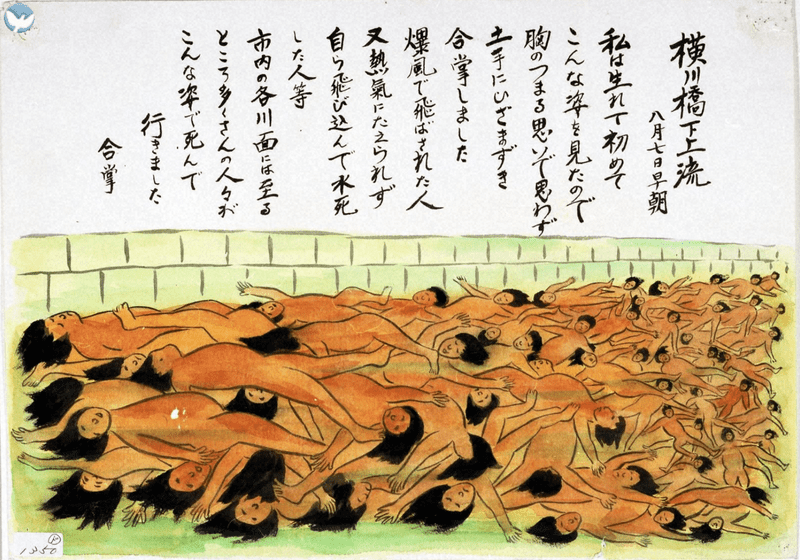 横川橋下上流
八月七日早朝
私は生れて初めて
こんな姿を見たので
胸のつまる思いで思わず
土手にひざまずき
合掌しました
爆風で飛ばされた人
又熱氣にたえられず
自ら飛び込んで水死
した人等
市内の各川面には至る
ところ多くさんの人々が
こんな姿で死んで
行きました
合掌
1350